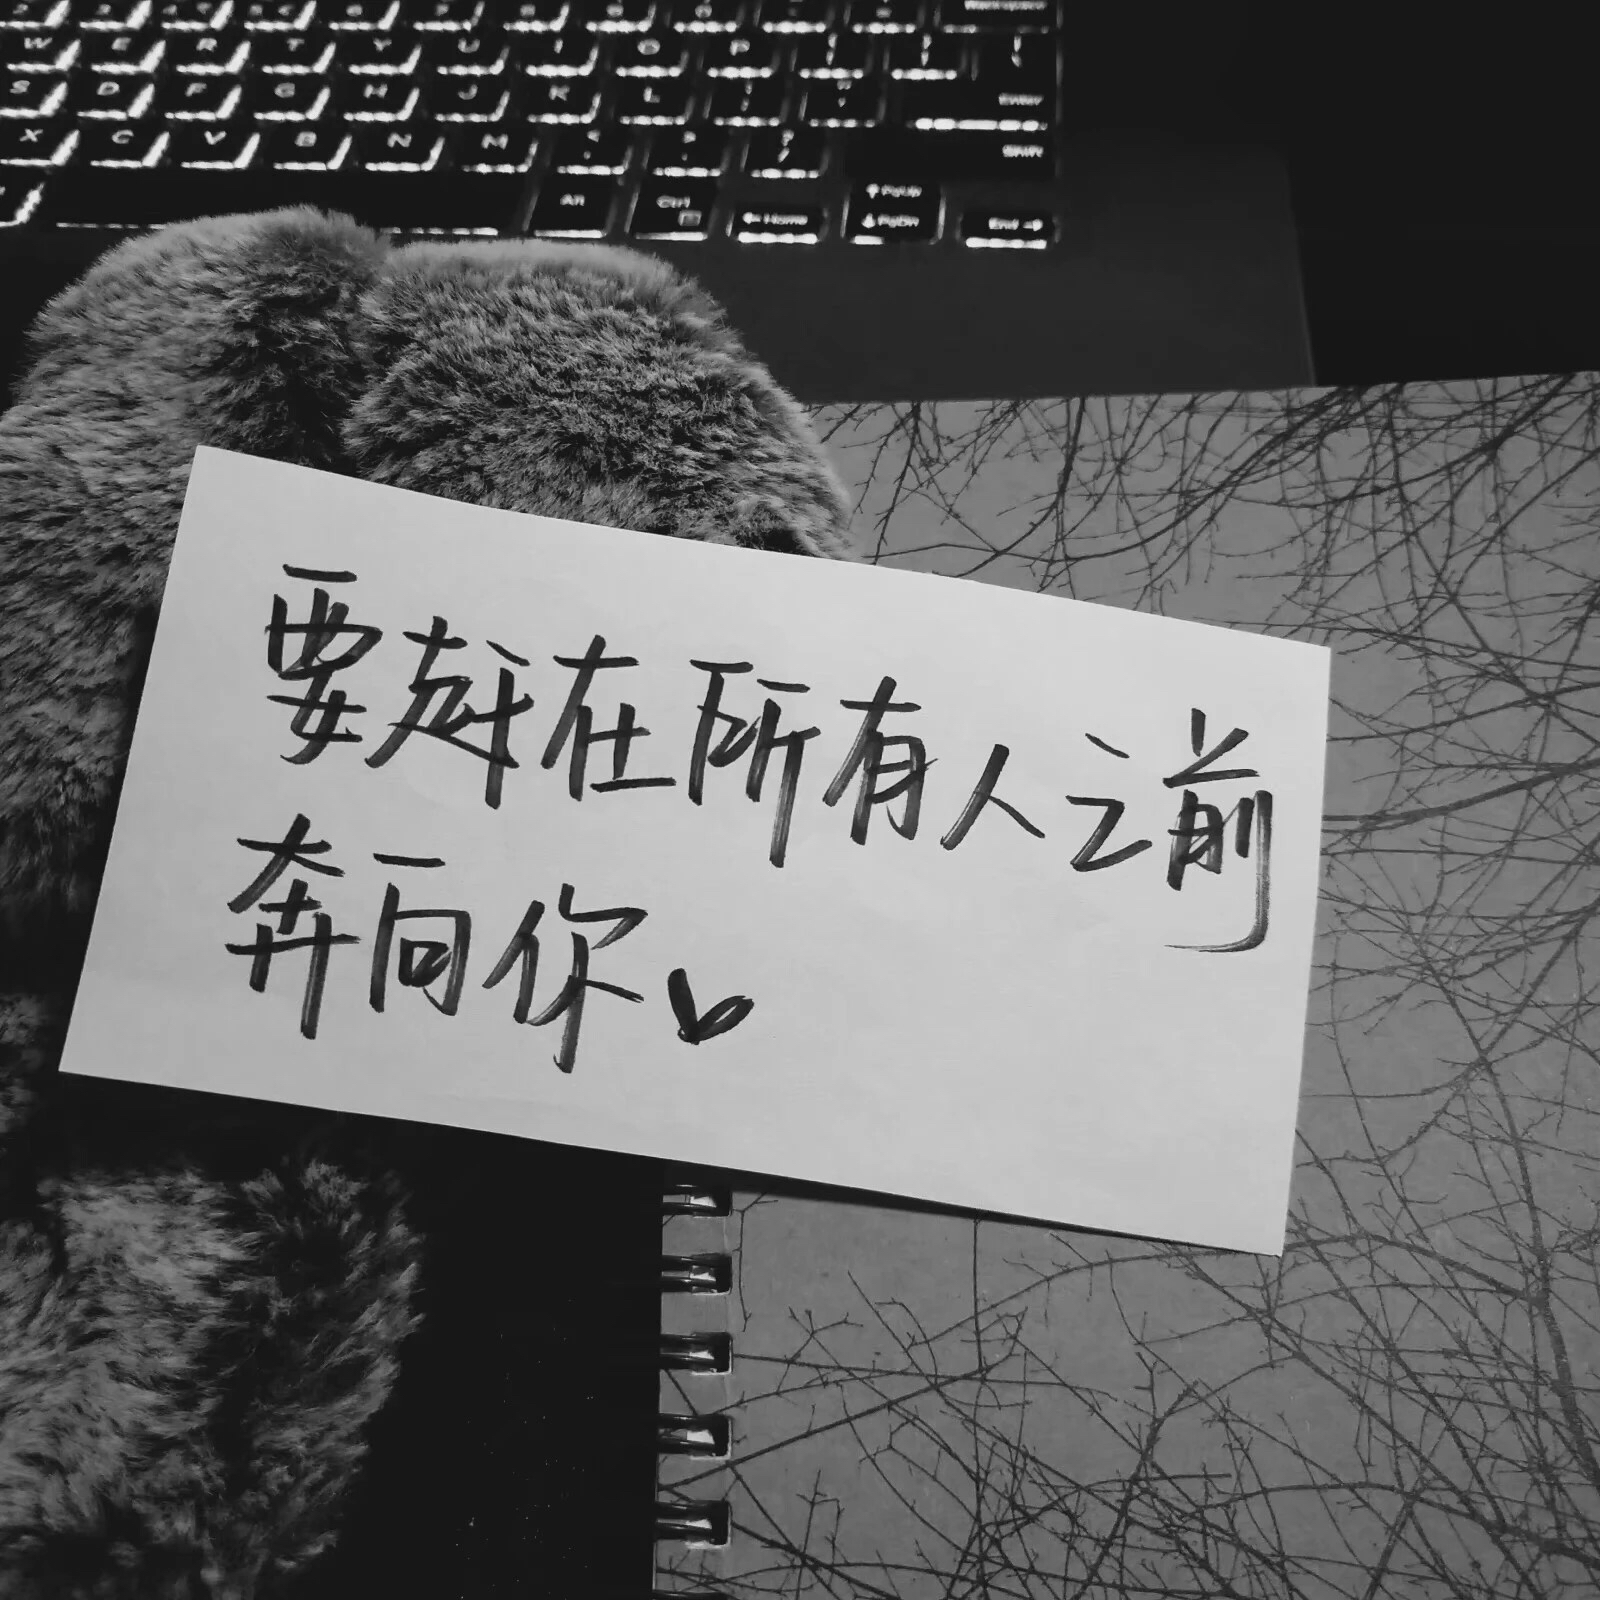 W E R T Y U I O P
S D F G H J K L Enter
X C V B N M Shift
Alt Ctrl Home PgUp PgDn End
要赶在所有人之前
奔向你